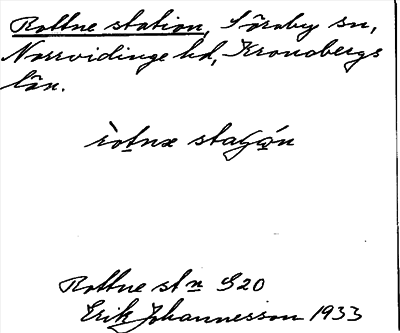 Rottne station, Söraby sn,
Norrvidinge hd, Kronobergs
län.
Rottne stn G20
Erik Johannesson 1933